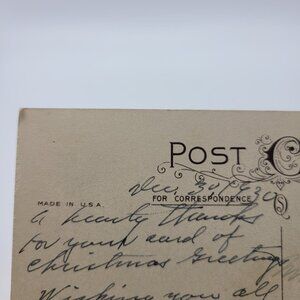 POST C
Dec. 30, 1930
MADE IN U.S.A.
FOR CORRESPONDENCE
A hearty thanks
for your card of
Christmas Greetings
Wishing you all